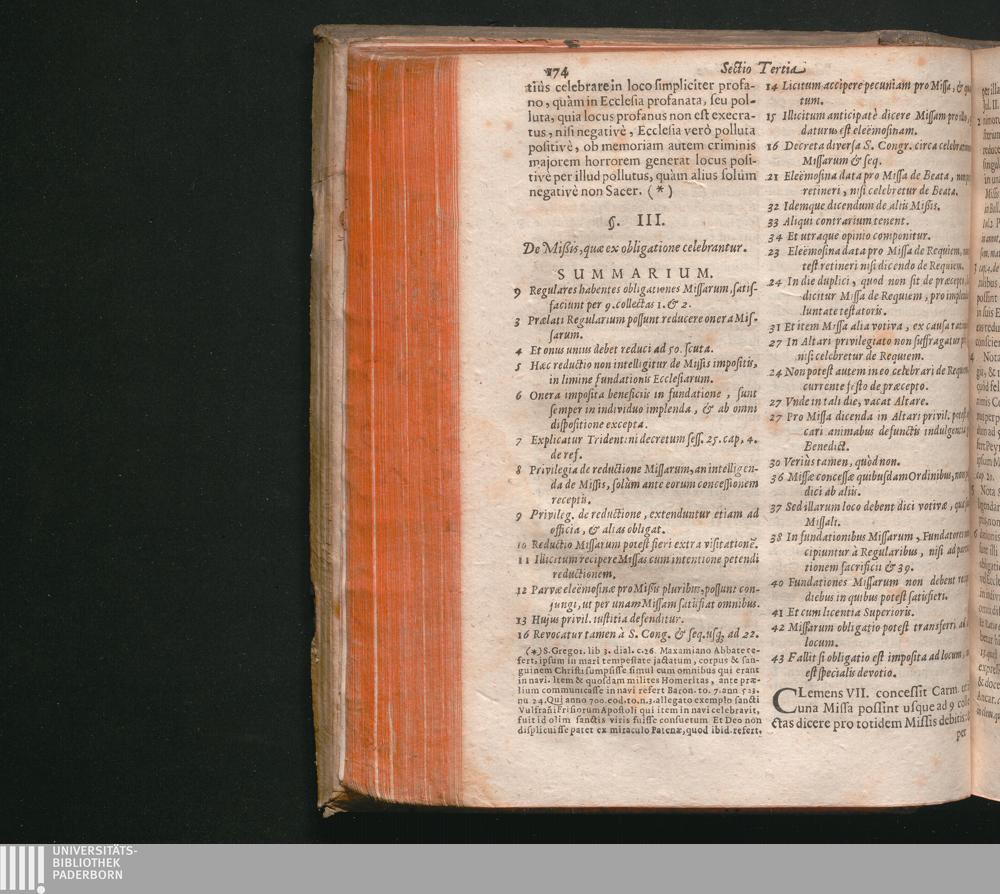 174
Sectio Tertia
tiùs celebrare in loco simpliciter profa-
no, quàm in Ecclesia profanata, seu pol-
luta, quia locus profanus non est execra-
tus, nisi negativè, Ecclesia verò polluta
positivè, ob memoriam autem criminis
majorem horrorem generat locus posi-
tivè per illud pollutus, quàm alius solùm
negativè non Sacer. (*)
§. III.
De Missis, quæ ex obligatione celebrantur.
SUMMARIUM.
9 Regulares habentes obligationes Missarum, satis-
faciunt per 9. collectas 1. & 2.
3 Prælati Regularium possunt reducere onera Mis-
sarum.
4 Et onus unius debet reduci ad 50. scuta.
5 Hæc reductio non intelligitur de Missis impositis,
in limine fundationis Ecclesiarum.
6 Onera imposita beneficiis in fundatione, sunt
semper in individuo implenda, & ab omni
dispositione excepta.
7 Explicatur Tridentini decretum sess. 25. cap, 4.
de ref.
8 Privilegia de reductione Missarum, an intelligen-
da de Missis, solùm ante eorum concessionem
receptis.
9 Privileg. de reductione, extenduntur etiam ad
officia, & alias obligat.
10 Reductio Missarum potest fieri extra visitationē.
11 Illicitum recipere Missas cum intentione petendi
reductionem.
12 Parvæ eleëmosinæ pro Missis pluribus, possunt con-
jungi, ut per unam Missam satisfiat omnibus.
13 Hujus privil. iustitia defenditur.
16 Revocatur tamen à S. Cong. & seq. usq; ad 22.
(*) S. Gregor. lib 3. dial. c. 26. Maxamiano Abbate re-
fert, ipsum in mari tempestate jactatum, corpus & san-
guinem Christi sumpsisse simul cum omnibus qui erant
in navi. Item & quosdam milites Homeritas, ante præ-
lium communicasse in navi refert Baron. to. 7. ann 523.
nu 24. Qui anno 700. eod. to. n. 3. allegato exemplo sancti
Vulfrañi Frisiorum Apostoli qui item in navi celebravit,
fuit id olim sanctis viris fuisse consuetum Et Deo non
displicuisse patet ex miraculo Patenæ, quod ibid. refert.
14 Licitum accipere pecuniam pro Missa, &
tum.
15 Illicitum anticipatè dicere Missam pro
daturus est eleëmosinam.
16 Decreta diversa S. Congr. circa
Missarum & seq.
21 Eleëmosina data pro Missa de Beata,
retineri, nisi celebretur de Beata.
32 Idemque dicendum de aliis Missis.
33 Aliqui contrarium tenent.
34 Et utraque opinio componitur.
23 Eleëmosina data pro Missa de Requiem,
test retineri nisi dicendo de Requiem.
24 In die duplici, quod non sit de præcept
dicitur Missa de Requiem, pro
luntate testatoris.
31 Et item Missa alia votiva, ex causa
27 In Altari privilegiato non suffragatur
nisi celebretur de Requiem.
24 Non potest autem in eo celebrari de
currente festo de præcepto.
27 Vnde in tali die, vacat Altare.
27 Pro Missa dicenda in Altari privil.
cari animabus defunctis indulgentia
Benedict.
30 Veriùs tamen, quòd non.
36 Missæ concessæ quibusdam Ordinibus,
dici ab aliis.
37 Sed illarum loco debent dici votivæ,
Missali.
38 In fundationibus Missarum, Fundatores
cipiuntur à Regularibus, nisi ad
tionem sacrificii & 39.
40 Fundationes Missarum non debent
diebus in quibus potest satisfieri.
41 Et cum licentia Superioris.
42 Missarum obligatio potest transferri
locum.
43 Fallit si obligatio est imposita ad locum,
est specialis devotio.
CLemens VII. concessit Carm.
una Missa possint usque ad 9
ctas dicere pro totidem Missis debitis
per
UNIVERSITÄTS-
BIBLIOTHEK
PADERBORN